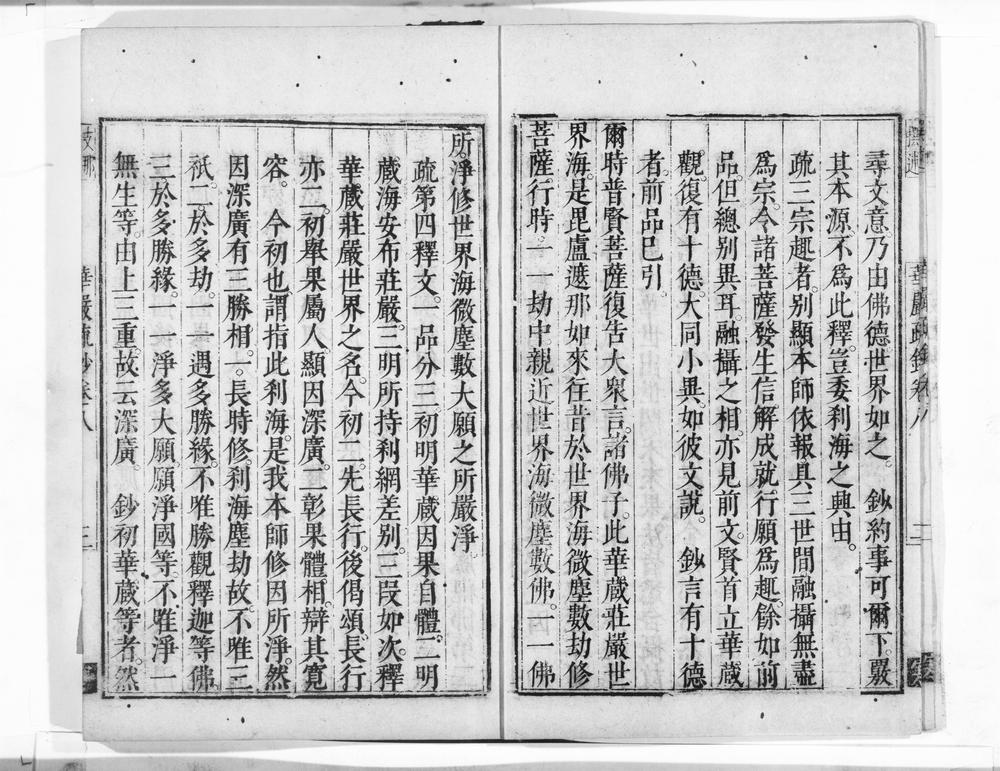 尋文意乃由佛德世界如之。 鈔約事可爾下覈
其本源不爲此釋。豈委刹海之興由。
疏三宗趣者。別顯本師依報具三世間融攝無盡
爲宗。令諸菩薩發生信解成就行願爲趣。餘如前
品。但總別異耳。融攝之相。亦見前文。賢首立華藏
觀。復有十德。大同小異。如彼文說。 鈔言有十德
者。前品已引。
爾時普賢菩薩復告大衆言。諸佛子。此華藏莊嚴世
界海。是毘盧遮那如來往昔於世界海微塵數劫修
菩薩行時。一一劫中。親近世界海微塵數佛。一一佛
所。淨修世界海微塵數大願之所嚴淨。
疏第四釋文。一品分三。初明華藏因果自體。二明
藏海安布莊嚴。三明所持刹網差別。三段如次釋
華藏莊嚴世界之名。今初二。先長行。後偈頌。長行
亦二。初舉果屬人。顯因深廣。二彰果體相。辯其寬
容。 今初也。謂指此刹海是我本師修因所淨。然
因深廣有三勝相。一。長時修刹海塵劫故。不唯三
祇。二。於多劫。一一遇多勝緣。不唯勝觀釋迦等佛
三於多勝緣。一一淨多大願。願淨國等。不唯淨一
無生等。由上三重。故云深廣。 鈔初華藏等者。然
華嚴疏鈔卷八
三